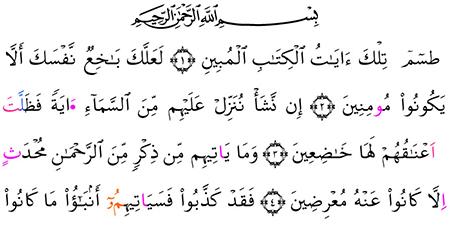 بِسْمِ اللَّهِ الرَّحْمَٰنِ الرَّحِيمِ
طسٓمٓ تِلْكَ ءَايَٰتُ الْكِتَٰبِ الْمُبِينِ ۝١ لَعَلَّكَ بَٰخِعٌ نَّفْسَكَ أَلَّا
يَكُونُوا۟ مُومِنِينَ ۝٢ إِن نَّشَأْ نُنَزِّلْ عَلَيْهِم مِّنَ السَّمَآءِ ءَايَةً فَظَلَّتَ
اَعْنَٰقُهُمْ لَهَا خَٰضِعِينَ ۝٣ وَمَا يَاتِيهِم مِّن ذِكْرٍ مِّنَ الرَّحْمَٰنِ مُحْدَثٍ
اِلَّا كَانُوا۟ عَنْهُ مُعْرِضِينَ ۝٤ فَقَدْ كَذَّبُوا۟ فَسَيَاتِيهِمُۥٓ أَنۢبَٰٓؤُا۟ مَا كَانُوا۟